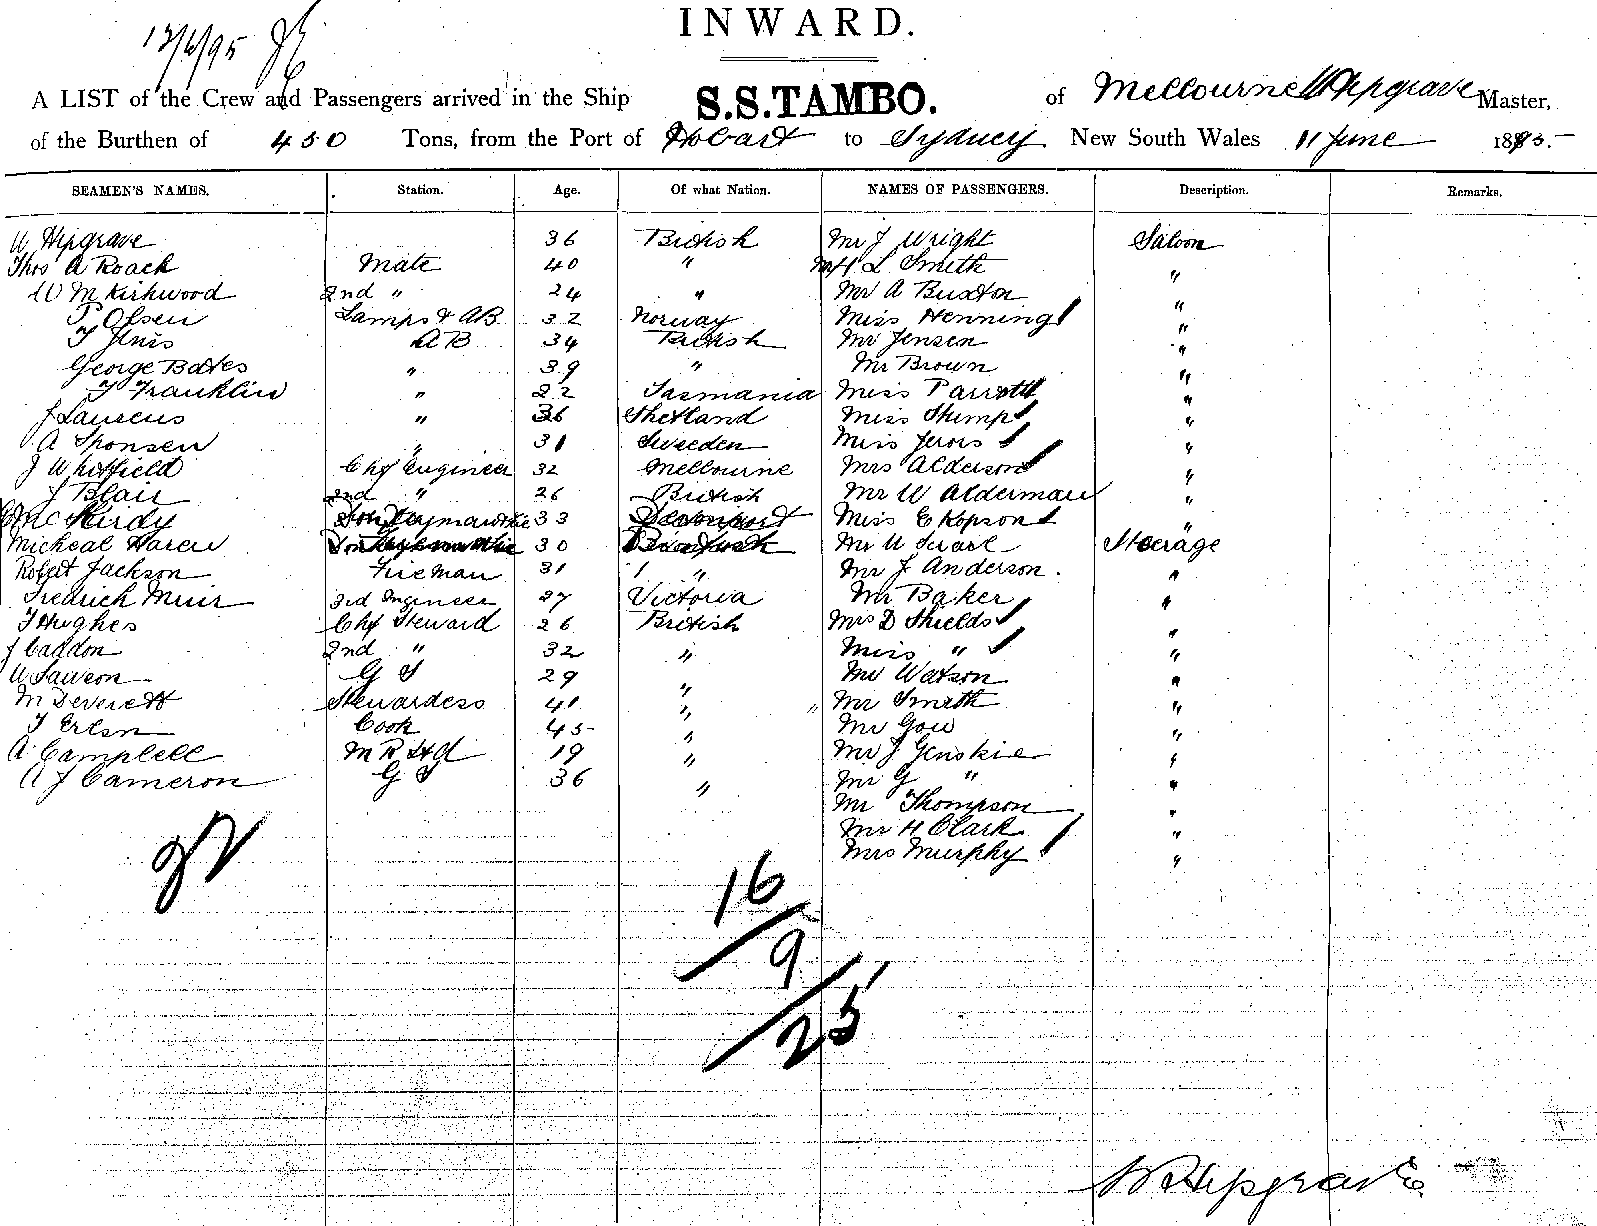 12/6/95
INWARD.
A LIST of the Crew and Passengers arrived in the Ship S.S. TAMBO. of Melbourne W Hipgrave Master,
of the Burthen of 450 Tons, from the Port of Hobart to Sydney New South Wales 11 June 1895.
SEAMEN'S NAMES. Station. Age. Of what Nation. NAMES OF PASSENGERS. Description. Remarks.
W Hipgrave 36 British Mr J Wright Saloon
Thos A Roach Mate 40 " Mr H L Smith "
W M Kirkwood 2nd " 24 " Mr A Buxton "
P Olsen Lamps & AB 32 Norway Miss Henning "
T Jinis AB 34 British Mr Jensen "
George Bates " 39 " Mr Brown "
T Franklin " 22 Tasmania Miss Parrott "
J Laurens " 36 Shetland Miss Shimp "
A Sponsen " 31 Sweden Miss Jerois "
J Whitfield Chf Engineer 32 Melbourne Mrs Alderson "
J Blair 2nd " 26 British Mr W Alderman "
McKirdy 33 Miss E Kopson "
Micheal Haren 30 Mr W Searl Steerage
Robert Jackson Fireman 31 " Mr J Anderson. "
Fredrick Muir 3rd Engineer 27 Victoria Mr Baker "
T Hughes Chf Steward 26 British Mrs D Shields "
J Caddon 2nd " 32 " Miss " "
W Lawson G S 29 " Mr Watson "
M Deverett Stewardess 41 " Mr Smith "
T Erlsn Cook 45 " Mr Gow "
A Campbell M R Std 19 " Mr J Genskie "
A J Cameron G S 36 " Mr G " "
Mr Thompson "
Mr H Clark "
Mrs Murphy "
22
16
9
25
W Hipgrave